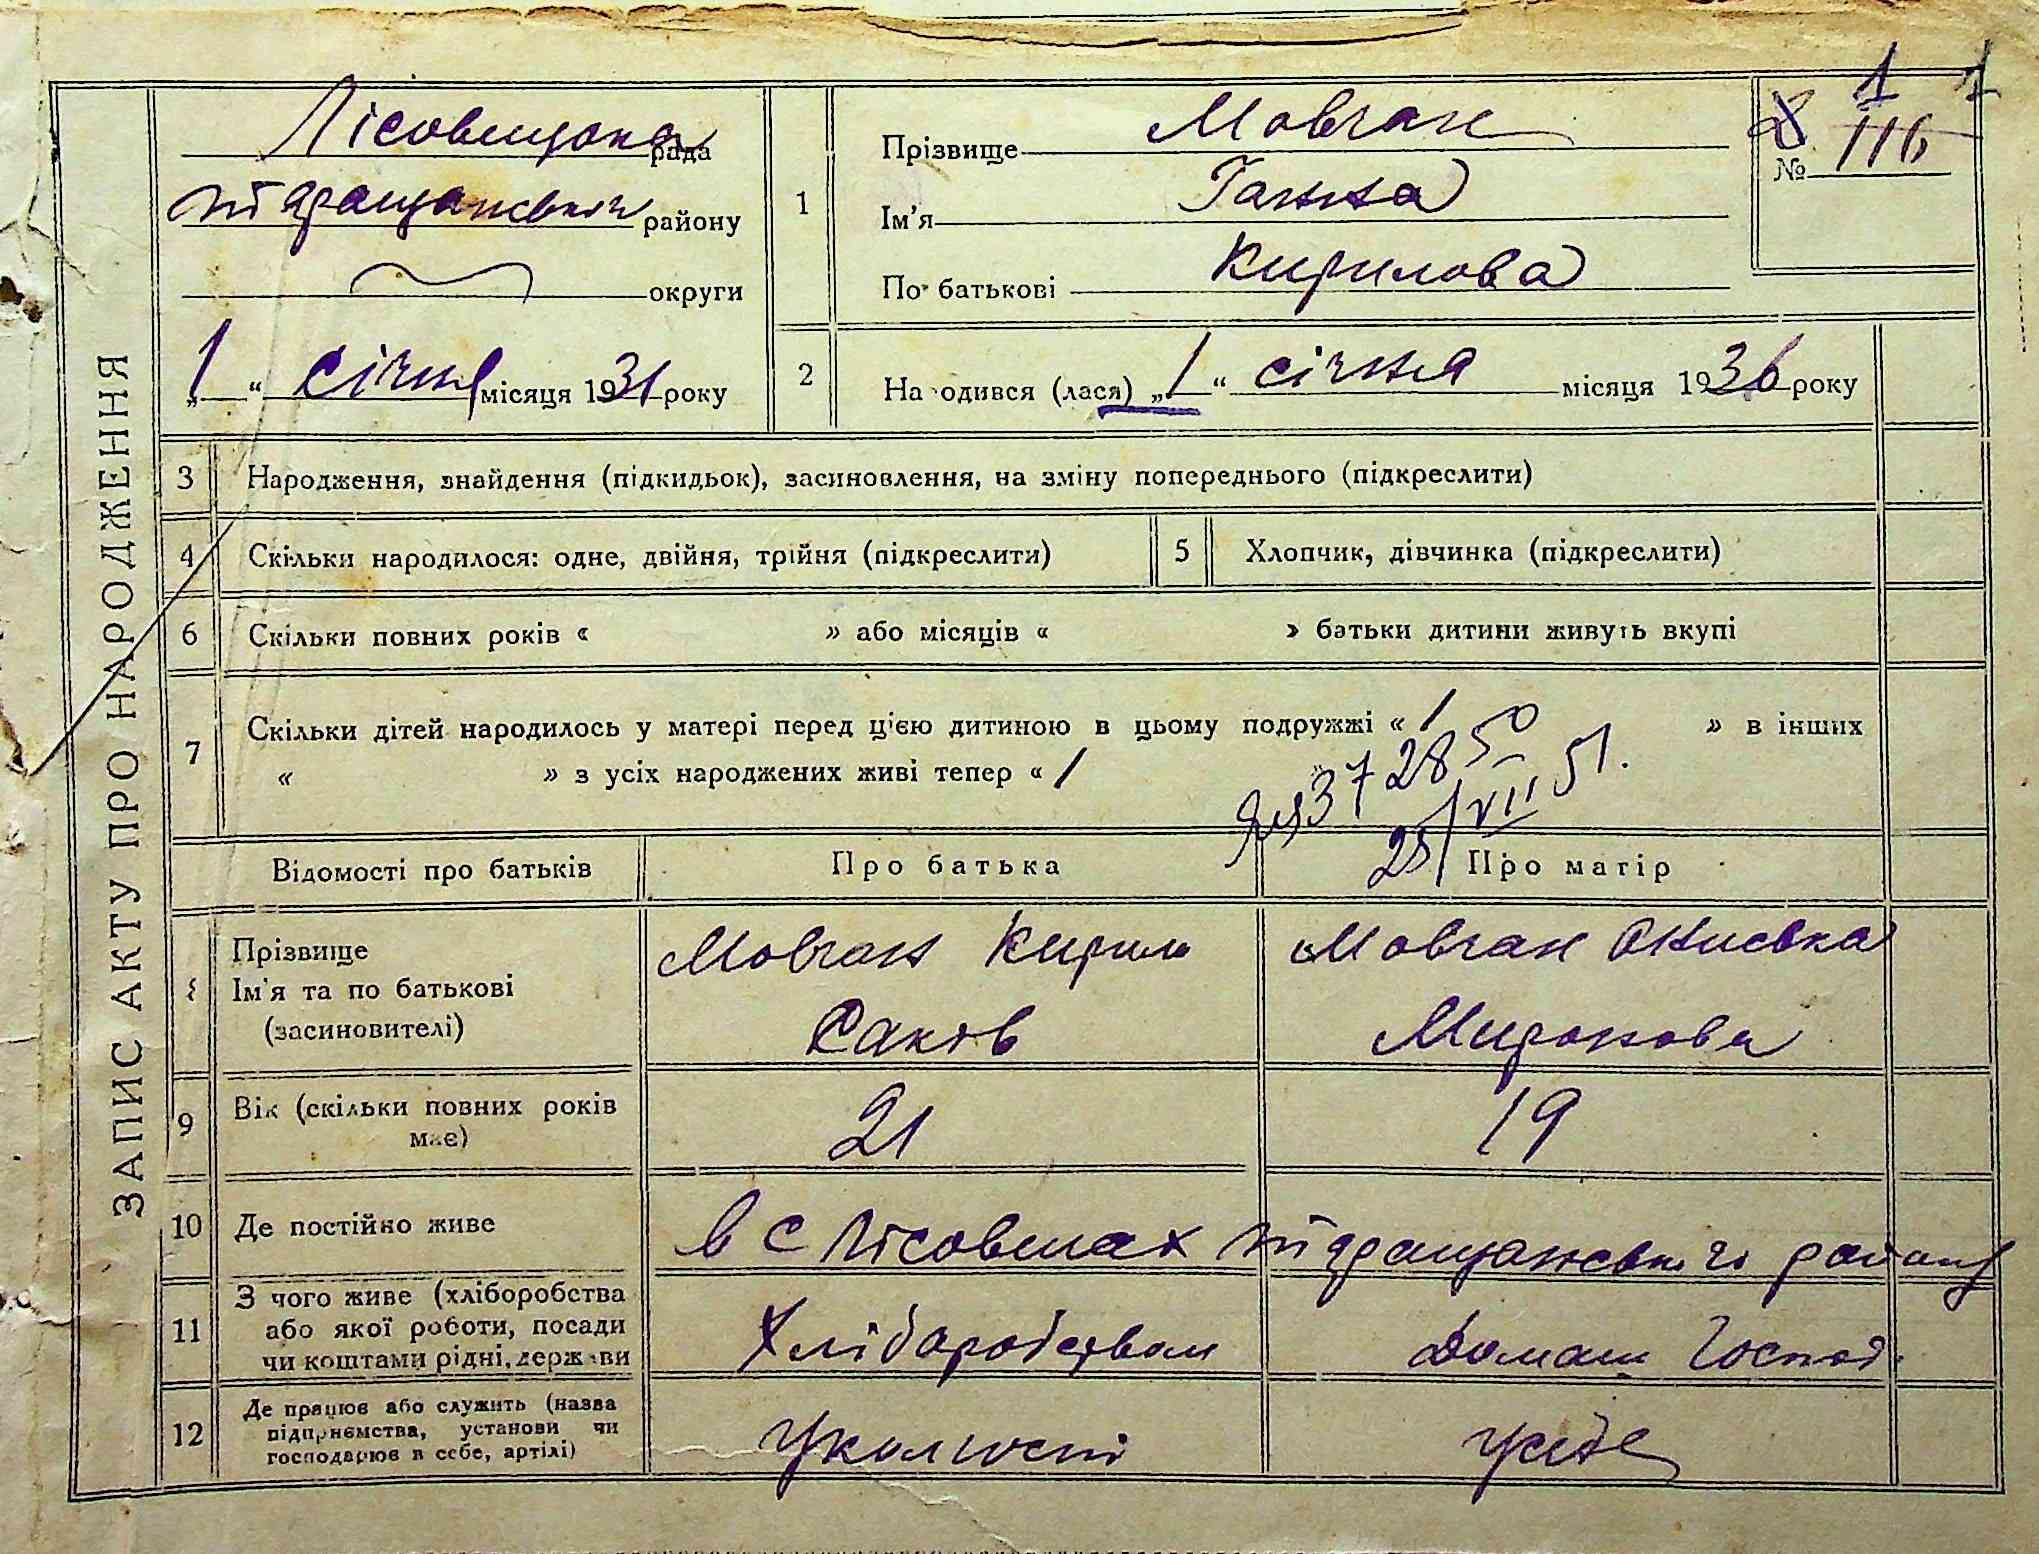 ЗАПИС АКТУ ПРО НАРОДЖЕННЯ
Лісовищська рада
району
округи
„1“ січня місяця 1931 року
1
Прізвище Мовчан
Ім'я Ганна
По батькові Кирилова
1 1
№ 116
2
На одився (лася) „1“ січня місяця 1936 року
3 Народження, знайдення (підкидьок), засиновлення, на зміну попереднього (підкреслити)
4 Скільки народилося: одне, двійня, трійня (підкреслити) 5 Хлопчик, дівчинка (підкреслити)
6 Скільки повних років « » або місяців « » батьки дитини живуть вкупі
7 Скільки дітей народилось у матері перед цією дитиною в цьому подружжі « 1 » в інших
« » з усіх народжених живі тепер « 1 »
372850
28/VII 51.
Відомості про батьків Про батька Про матір
8
Прізвище
Ім'я та по батькові
(засиновителі)
Мовчан Кирило
Саков
Мовчан
Миронова
9 Вік (скільки повних років
має)
21 19
10 Де постійно живе в с Лісовщах району
11 З чого живе (хліборобства
або якої роботи, посади
чи коштами рідні, держави
Хліборобством Домаш Господ.
12 Де працює або служить (назва
підприємства, установи чи
господарює в себе, артілі)
У колгоспі У себе